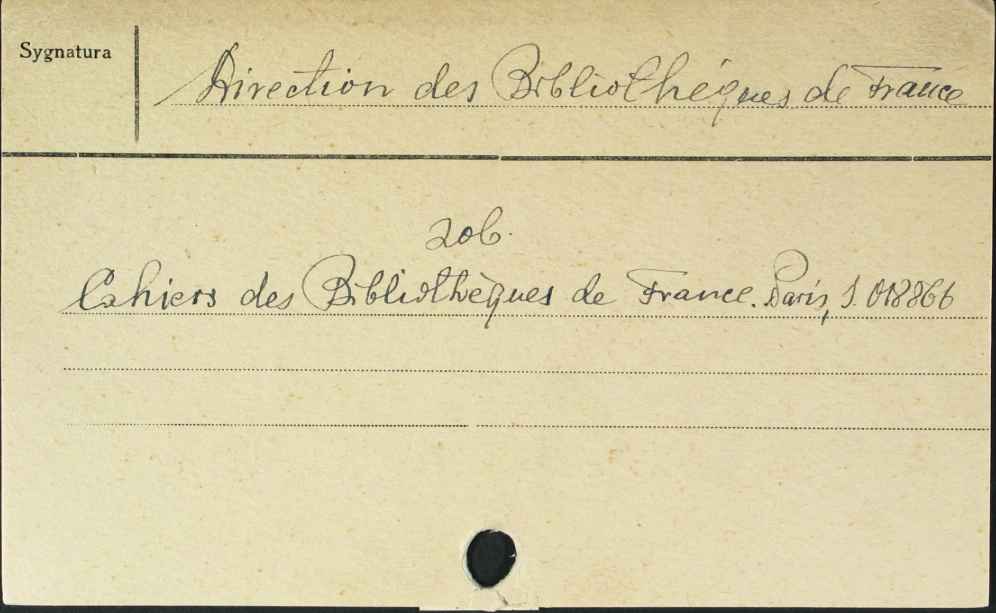 Sygnatura
Direction des Bibliothéques de France
zob.
Cahiers des Bibliothèques de France. Paris, S. 018866